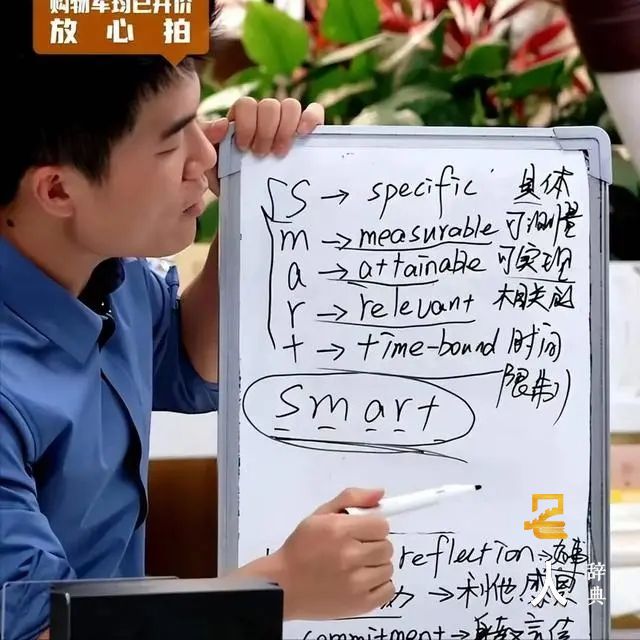 购物车均已开价
放心拍
S → specific 具体
m → measurable 可测量
a → attainable 可实现
r → relevant 相关的
t → time-bound 时间
限制
smart
reflection →
→ 利他
commitment →
人
辞典